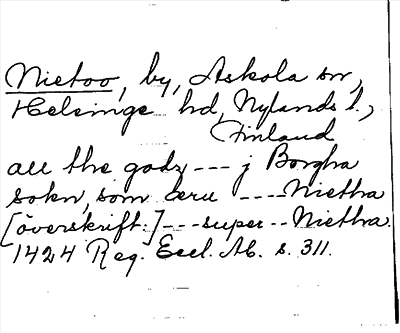 Nietoo, by, Askola sn,
Helsinge hd, Nylands l.,
Finland
all the godz --- j Borgha
sokn, som æru ---- Niettha
[överskrift:] --- super -- Niettha.
1424 Reg. Eccl. Ab. s. 311.